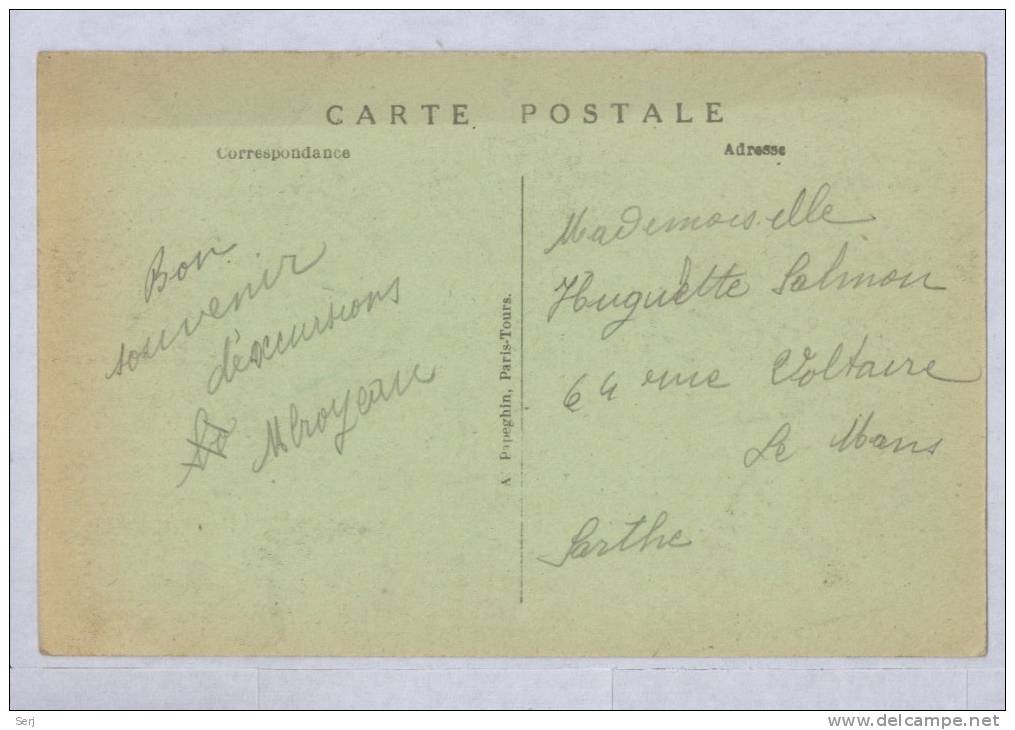 CARTE POSTALE
Correspondance
Adresse
Bon
souvenir
d'excursions
A. Papeghin, Paris-Tours.
Mademoiselle
Huguette Salmon
64 rue Voltaire
Le Mans
Sarthe
Serj
www.delcampe.net